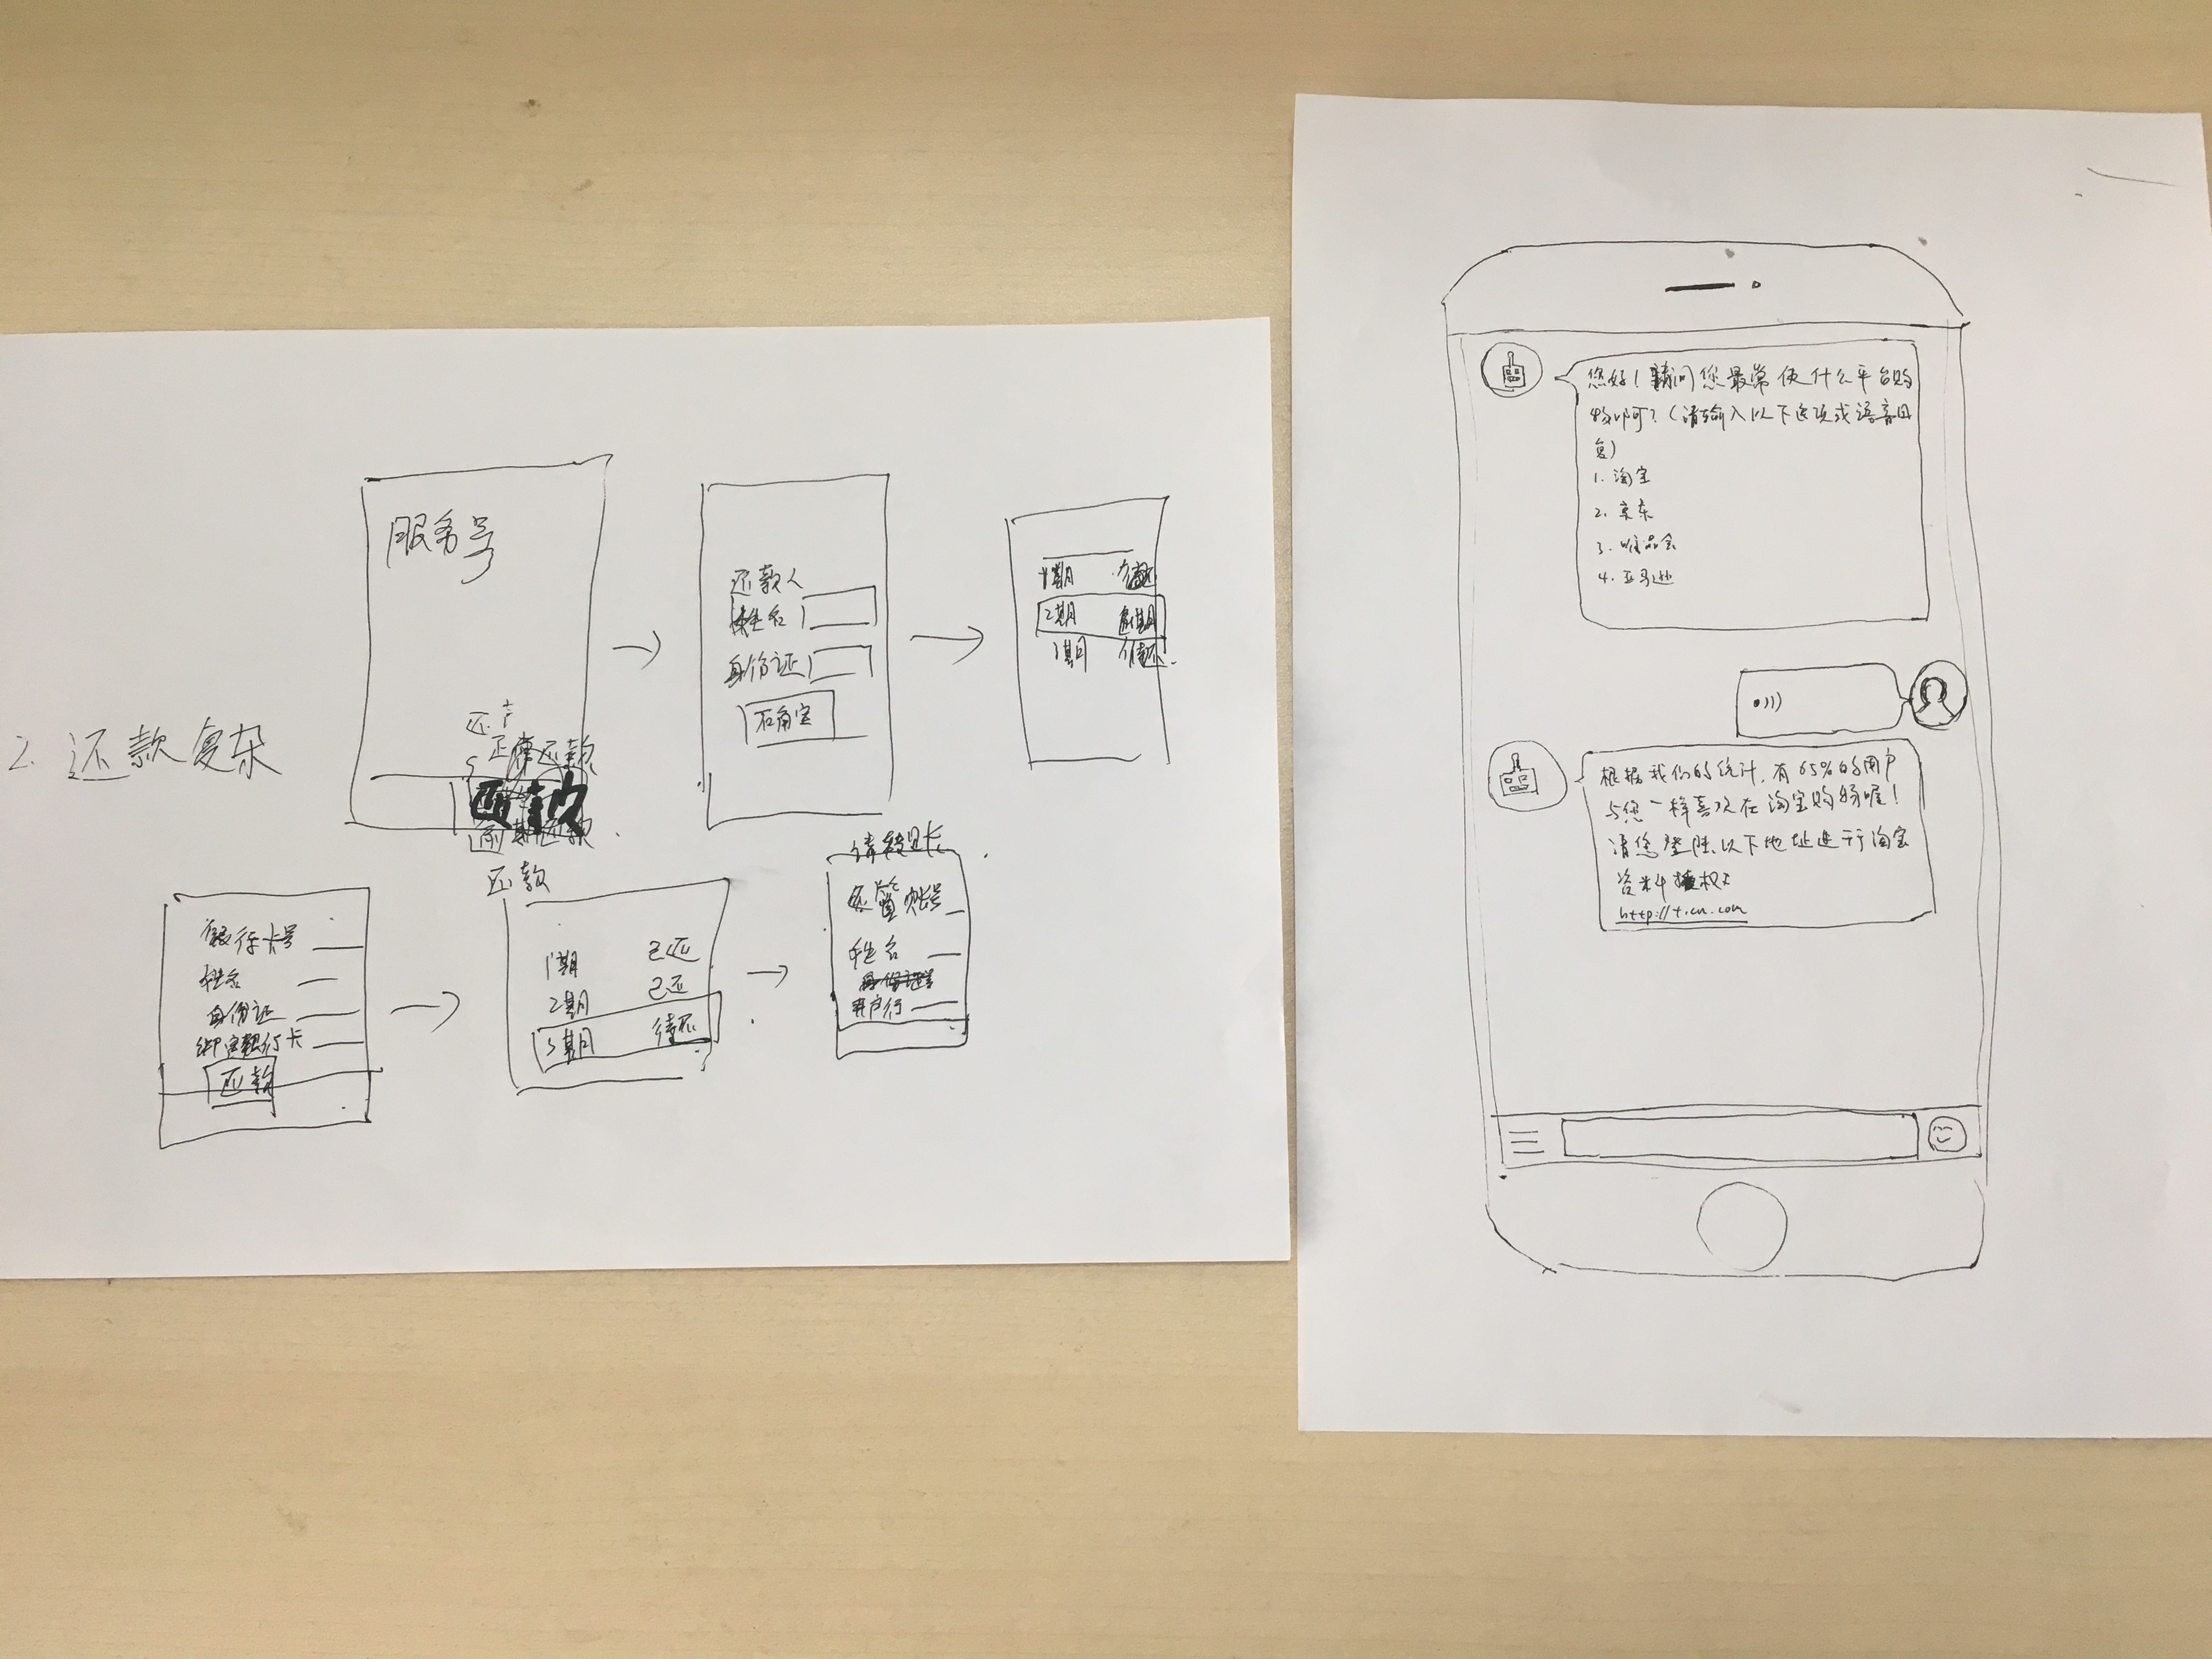 2. 还款复杂
服务号
正常还款
还款
逾期还款
还款人
姓名
身份证
确定
1期
2期 逾期
3期 待还
银行卡号
姓名
身份证
绑定银行卡
还款
还款
1期 已还
2期 已还
3期 待还
账号
姓名
开户行
您好！请问您最常使什么平台购
物呀？（请输入以下选项或语音回
复）
1. 淘宝
2. 京东
3. 唯品会
4. 亚马逊
根据我们的统计，有65%的用户
与您一样喜欢在淘宝购物喔！
请您登陆以下地址进行淘宝
资料授权
http://t.cn.com